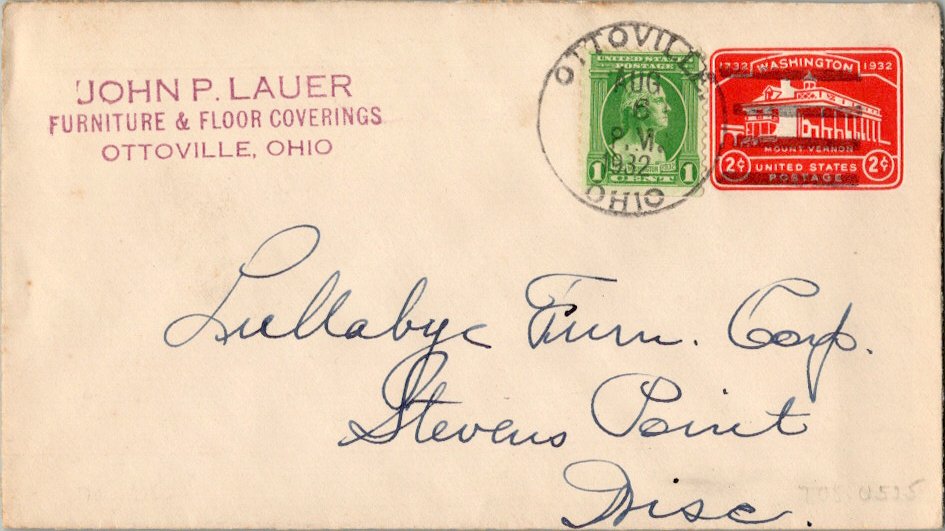 JOHN P. LAUER
FURNITURE & FLOOR COVERINGS
OTTOVILLE, OHIO
OTTOVILLE,
AUG
6
P.M.
1932
OHIO
UNITED STATES
POSTAGE
1 1
1732 WASHINGTON 1932
MOUNT VERNON
2¢ UNITED STATES 2¢
POSTAGE
Lullabye Furn. Corp.
Stevens Point
Wisc.